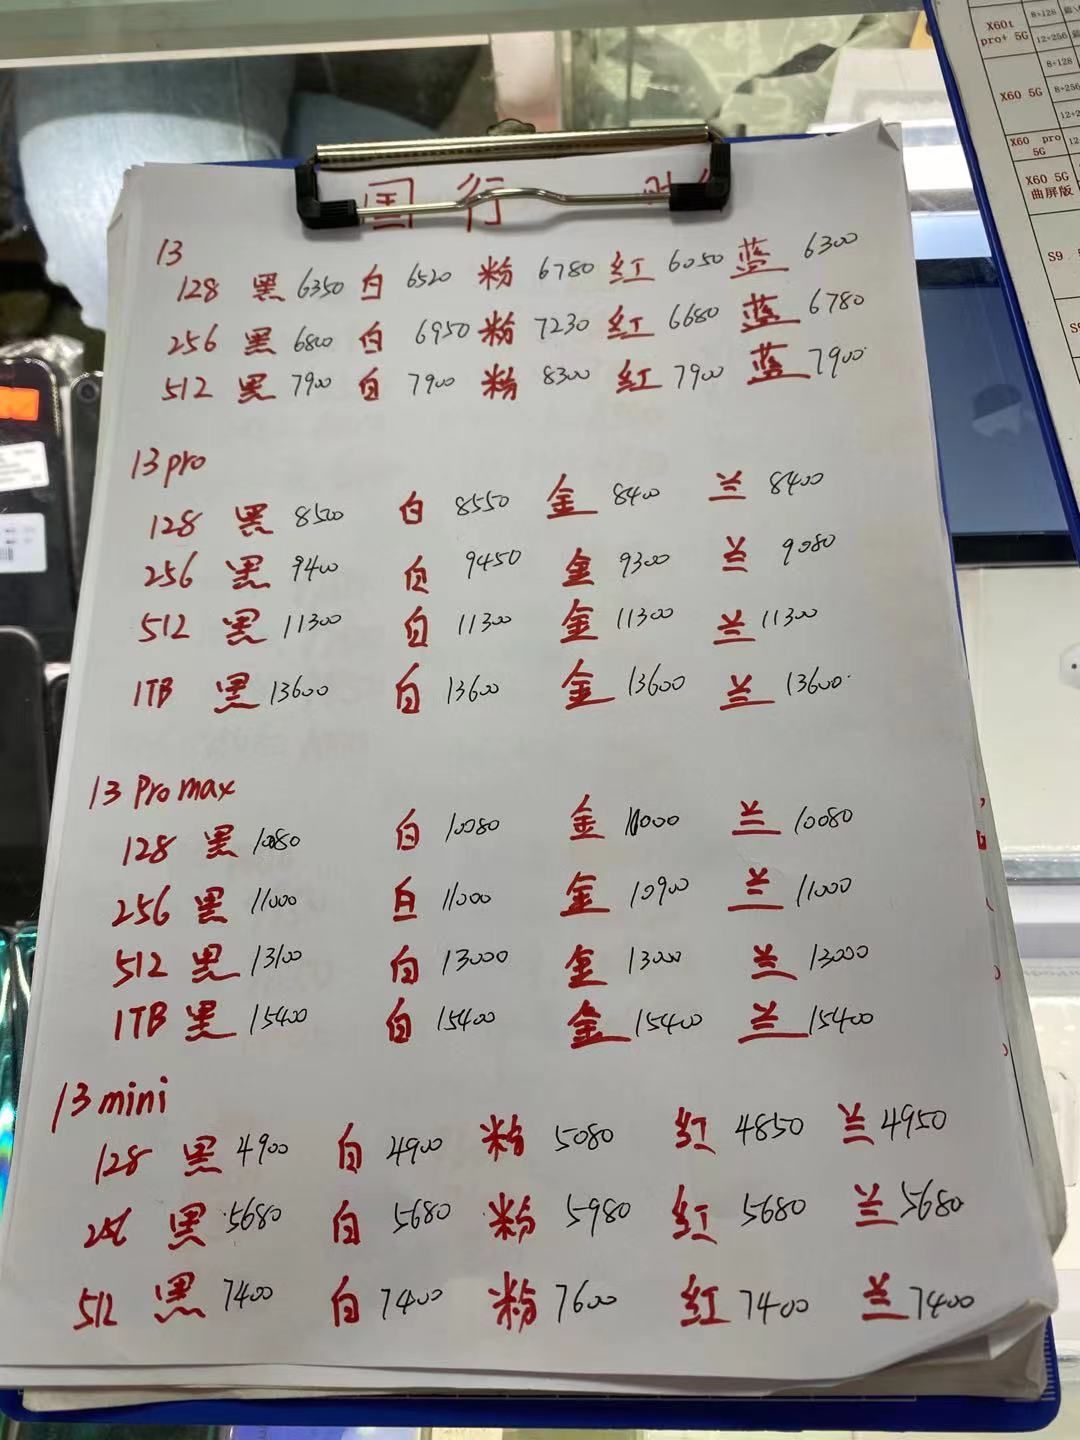 国行
13
128 黑 6350 白 6520 粉 6780 红 6050 蓝 6300
256 黑 6800 白 6950 粉 7230 红 6680 蓝 6780
512 黑 7900 白 7900 粉 8300 红 7900 蓝 7900
13 pro
128 黑 8500 白 8550 金 8400 兰 8400
256 黑 9400 白 9450 金 9300 兰 9080
512 黑 11300 白 11300 金 11300 兰 11300
1TB 黑 13600 白 13600 金 13600 兰 13600
13 Pro max
128 黑 10080 白 10080 金 兰 10080
256 黑 11000 白 11000 金 10900 兰 11000
512 黑 13100 白 13000 金 13000 兰 13000
1TB 黑 15400 白 15400 金 15400 兰 15400
13 mini
128 黑 4900 白 4900 粉 5080 红 4850 兰 4950
256 黑 5680 白 5680 粉 5980 红 5680 兰 5680
512 黑 7400 白 7400 粉 7600 红 7400 兰 7400
X60t 8+128
pro+ 5G 12+256
8+128
X60 5G 8+256
X60 pro
5G
X60 5G
曲屏版
S9